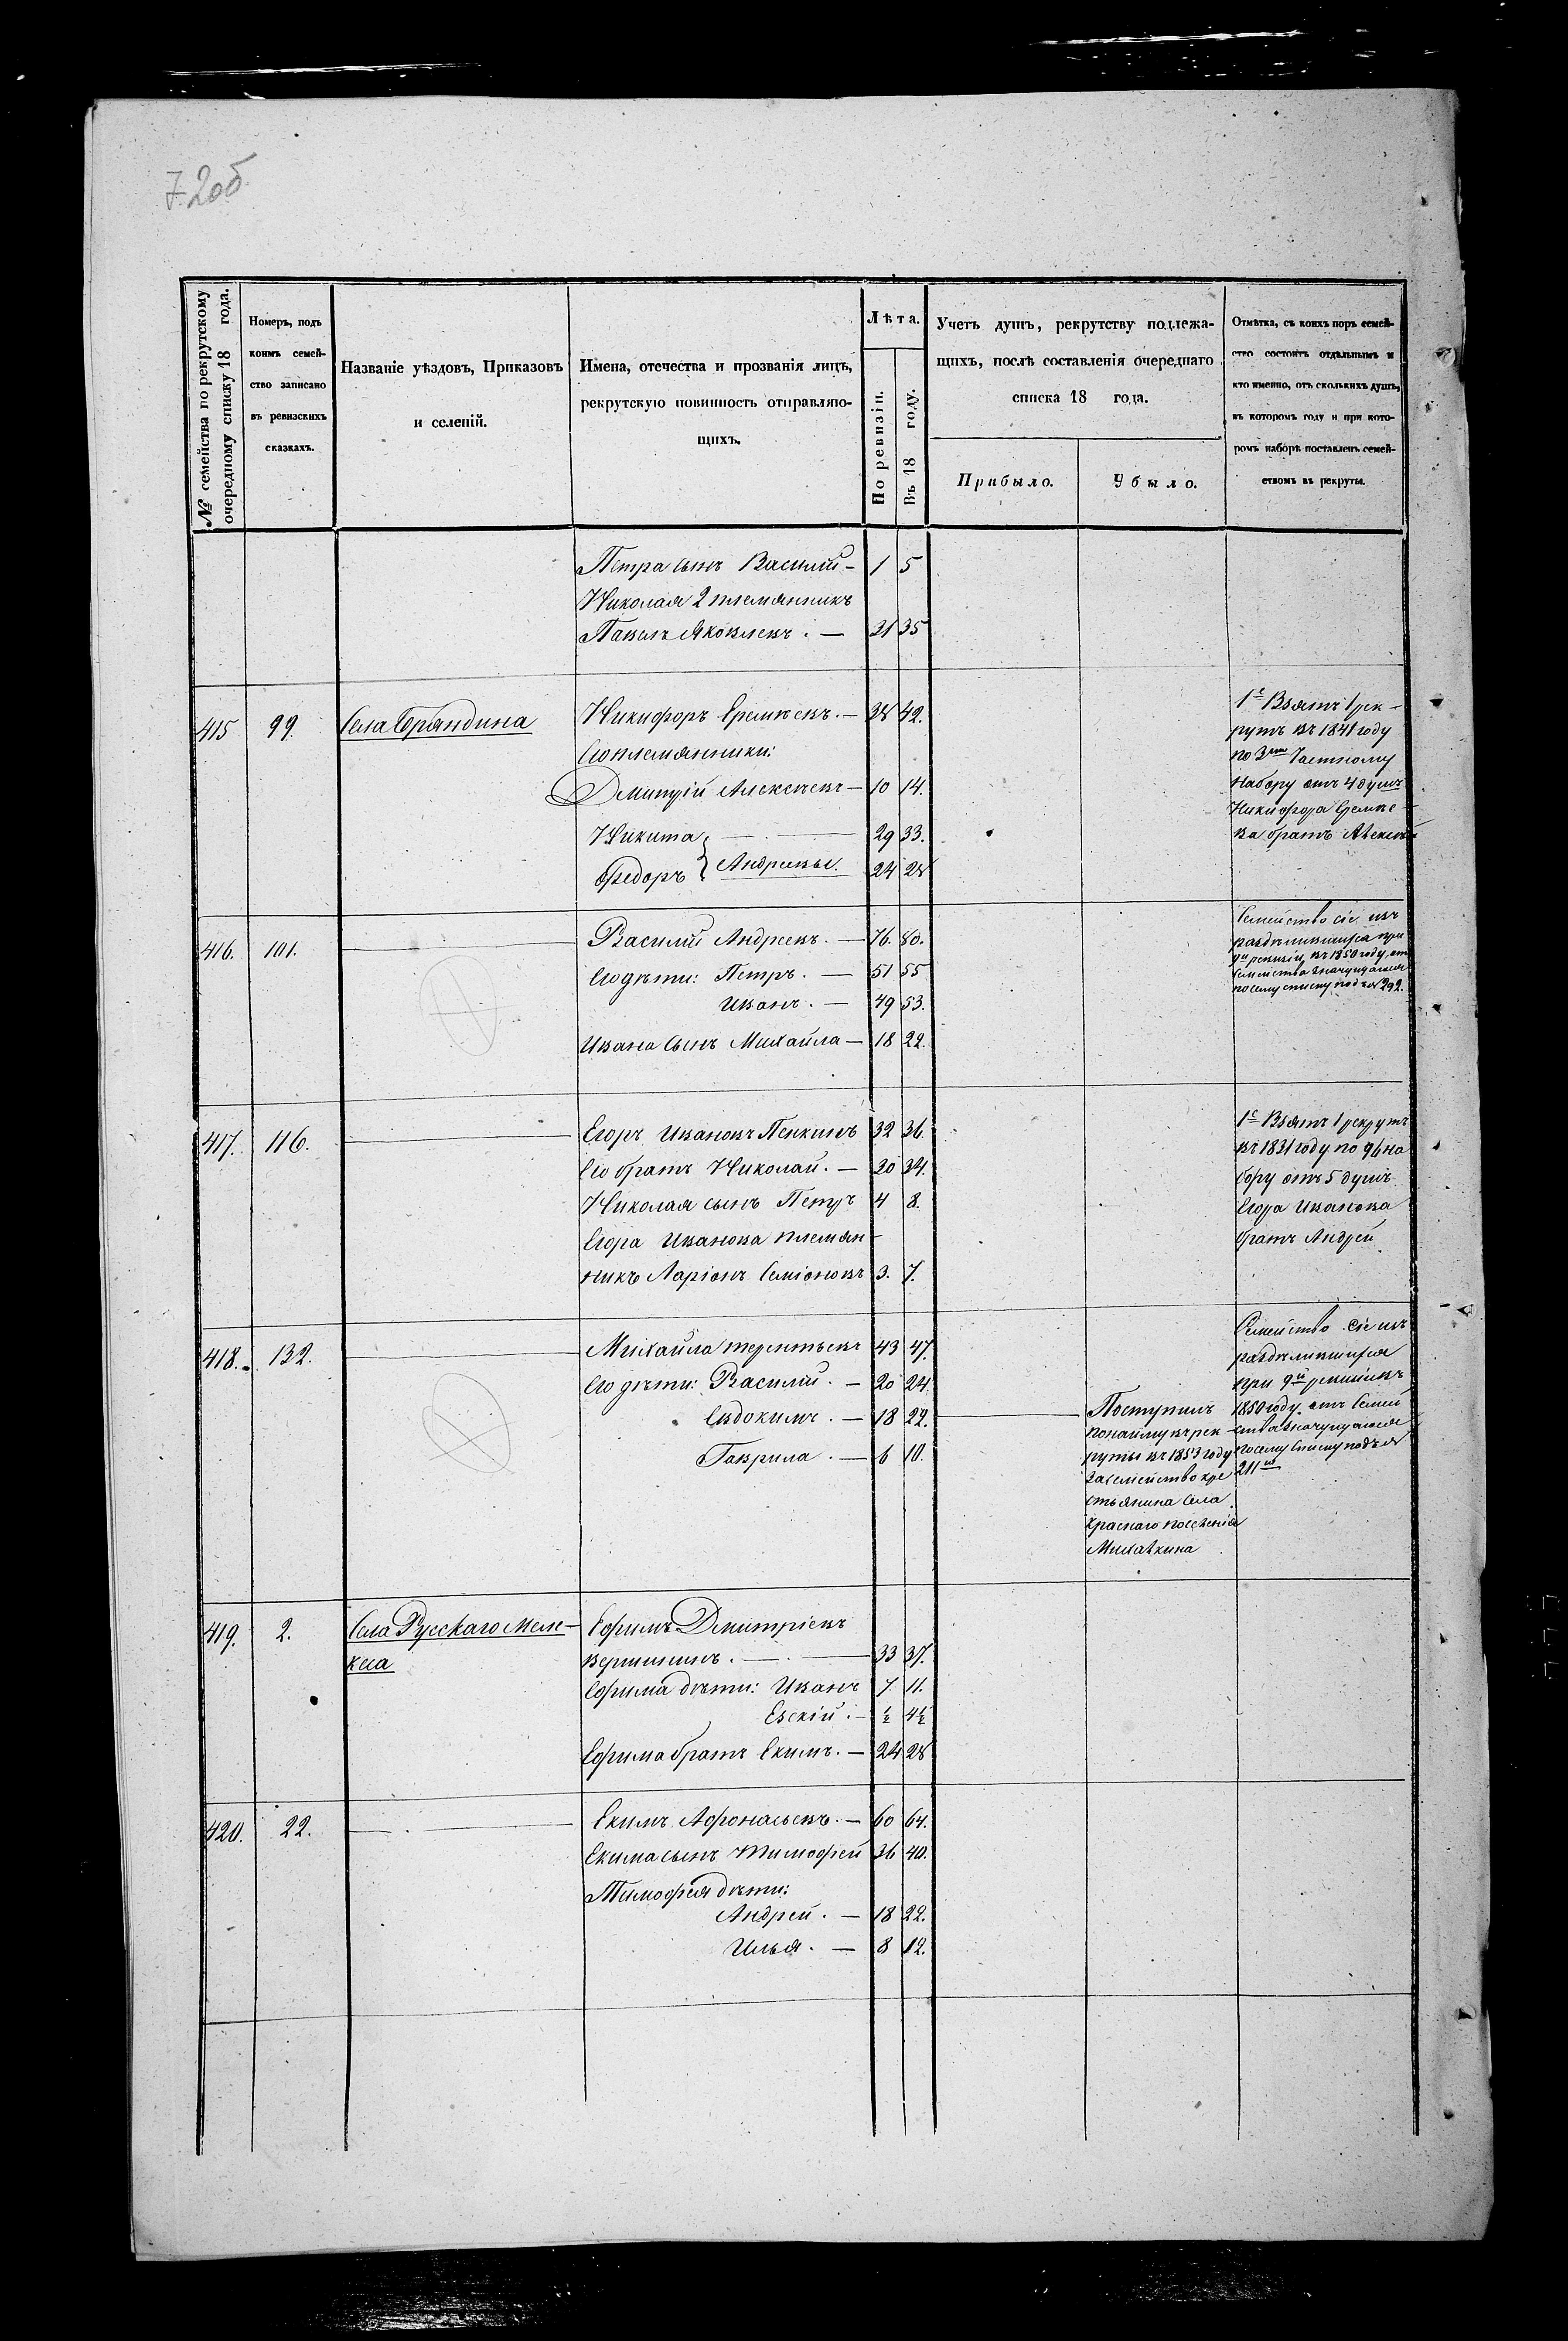 72об.
№ семейства по рекрутскому
очередному списку 18 года.
Номеръ, подъ
коимъ семей-
ство записано
въ ревизскихъ
сказкахъ.
Названіе уѣздовъ, Приказовъ
и селеній.
Имена, отечества и прозванія лицъ,
рекрутскую повинность отправляю-
щихъ.
Лѣта.
По ревизіи.
Въ 18 году.
Учетъ душъ, рекрутству подлежа-
щихъ, послѣ составленія очереднаго
списка 18 года.
Прибыло.
Убыло.
Отмѣтка, съ коихъ поръ семей-
ство состоитъ отдѣльнымъ и
кто именно, отъ сколькихъ душъ,
въ которомъ году и при кото-
ромъ наборѣ поставленъ семей-
ствомъ въ рекруты.
Петра сынъ Василій - 1 5
Николая 2 племянникъ
Павелъ Яковлевъ. — 31 35
415 99. Села Бряндина Никифоръ Еремѣевъ. — 38 42.
Его племянники:
Дмитрій Алексѣевъ — 10 14.
Никита 29 33.
Федоръ } Андреевы. 24 28
1е Взятъ 1 рек-
рутъ въ 1841 году
по 3му Частному
набору отъ 4 душъ
Никифора Еремѣе-
ва братъ Алексѣй
416. 101. Василій Андреевъ. — 76. 80.
Его дѣти: Петръ. — 51 55
Иванъ. — 49 53.
Ивана сынъ Михайла — 18 22.
Семейство сіе изъ
раздѣлившихся при
9й ревизіи въ 1850 году отъ
семейства значущагося
по сему списку подъ № 292.
417. 116. Егоръ Ивановъ Пенкинъ 32 36.
Его братъ Николай. — 30 34.
Николая сынъ Петръ 4 8.
Егора Иванова племян-
никъ Ларіонъ Семіоновъ 3. 7.
1е Взятъ 1 рекрутъ
въ 1831 году по 96 на
бору отъ 5 душъ
Егора Иванова
братъ Андрей
418. 132. Михайла Терентьевъ 43 47.
Его дѣти: Василій. — 20 24.
Евдокимъ. — 18 22.
Гаврила. — 6 10.
Поступилъ
по найму въ рек-
руты въ 1853 году
за семейство кре
стьянина села
Краснаго поселенія
Семейство сіе изъ
раздѣлившихся
при 9й ревизіи въ
1850 году отъ семей
ства значущагося
по сему списку подъ №
211мъ
419. 2. Села Русскаго Меле-
кеса
Ефимъ Дмитріевъ
Вершининъ. 33 37.
Ефима дѣти: Иванъ 7. 11.
Евскій. — ½ 4½
Ефима братъ Екимъ. — 24 28
420. 22. Екимъ Афонасьевъ. — 60 64.
Екима сынъ Тимофей 36 40.
Тимофея дѣти:
Андрей. — 18 22.
Илья. — 8 12.